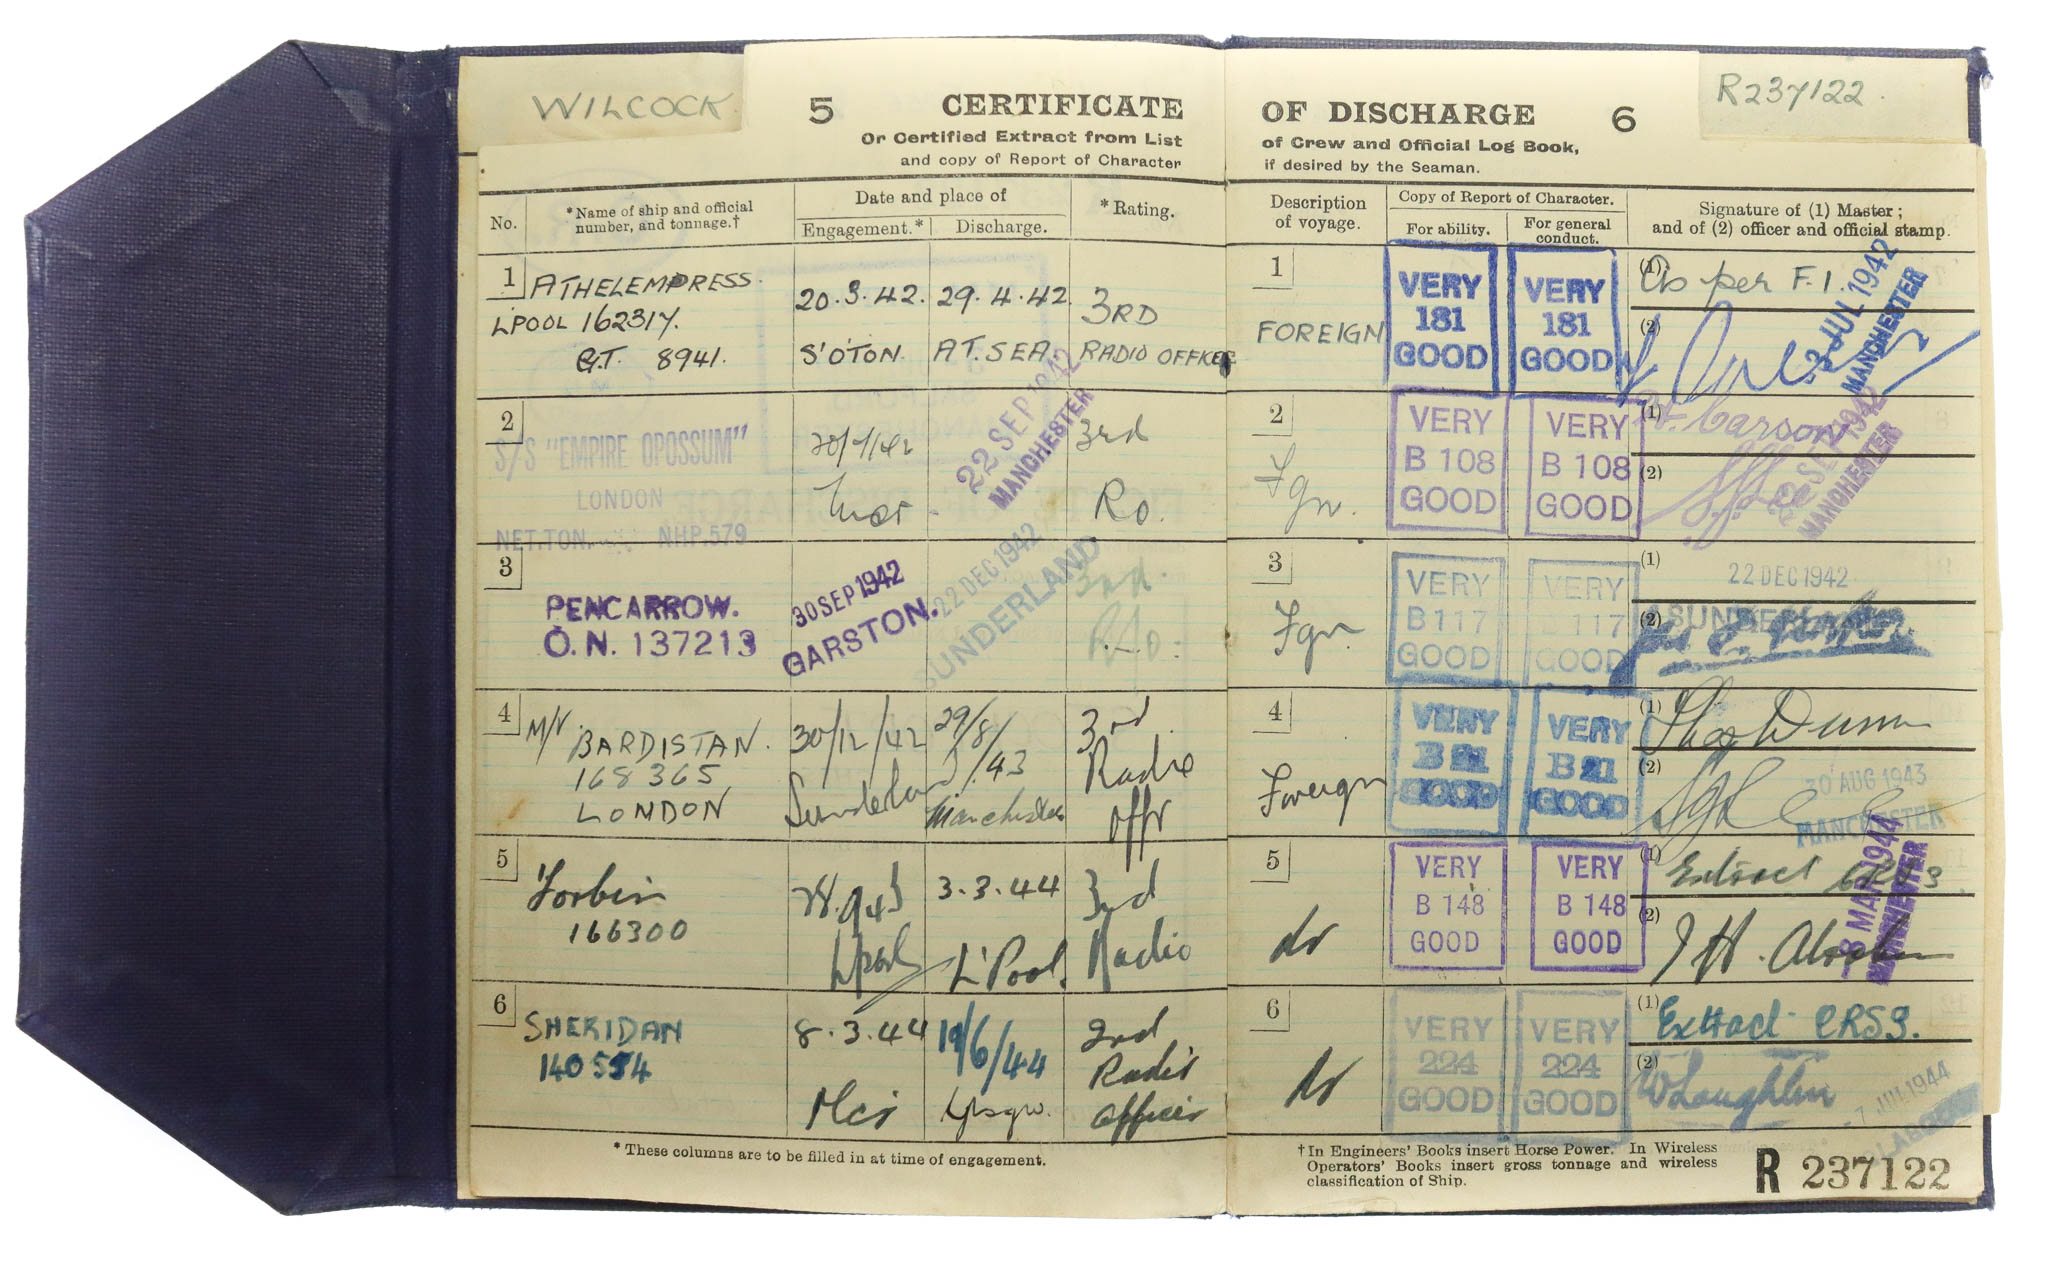 WILCOCK
5 CERTIFICATE OF DISCHARGE 6
R237122.
Or Certified Extract from List of Crew and Official Log Book,
and copy of Report of Character if desired by the Seaman.
No.
*Name of ship and official
number, and tonnage.†
Date and place of
Engagement.* Discharge.
*Rating.
Description
of voyage.
Copy of Report of Character.
For ability.
For general
conduct.
Signature of (1) Master;
and of (2) officer and official stamp.
1
ATHELEMPRESS.
L'POOL 162317.
G.T. 8941.
20.3.42. 29.4.42.
S'O'TON. AT. SEA
3RD
RADIO OFFICER
1
FOREIGN
VERY
181
GOOD
VERY
181
GOOD
(1) As per F.1.
(2)
3 JUL 1942
MANCHESTER
2
S/S "EMPIRE OPOSSUM"
LONDON
NET.TON. NHP.579
20/7/42
22 SEP 1942
MANCHESTER
3rd
R.O.
2
Fgn.
VERY
B 108
GOOD
VERY
B 108
GOOD
(1) Carson
(2)
22 SEP 1942
MANCHESTER
3
PENCARROW.
O.N. 137213
30 SEP 1942
GARSTON.
22 DEC 1942
SUNDERLAND
3rd.
R/O.
3
Fgn
VERY
B 117
GOOD
VERY
B 117
GOOD
(1)
22 DEC 1942
(2) SUNDERLAND
4
M/V BARDISTAN.
168365
LONDON
30/12/42
Sunderland
29/8/43
Manchester
3rd
Radio
Offr
4
Foreign
VERY
B 21
GOOD
VERY
B 21
GOOD
(1) Thos Dunn
(2)
30 AUG 1943
MANCHESTER
5
Forbin
166300
28.9.43
L'pool
3.3.44
L'Pool.
3rd
Radio
5
do
VERY
B 148
GOOD
VERY
B 148
GOOD
(1) Extract CRS 3
(2)
8 MAR 1944
6
SHERIDAN
140554
8.3.44
Mcr
19/6/44
Glasgow.
2nd
Radio
Officer
6
do
VERY
224
GOOD
VERY
224
GOOD
(1) Extract CRS3.
(2) W Laughlin
7 JUL 1944
* These columns are to be filled in at time of engagement.
† In Engineers' Books insert Horse Power. In Wireless
Operators' Books insert gross tonnage and wireless
classification of Ship.
R 237122